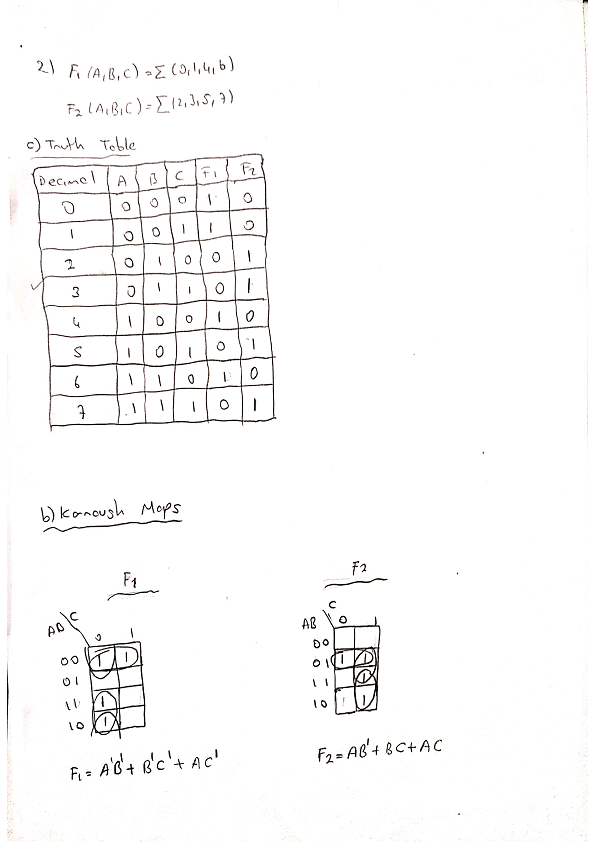 2) F₁ (A,B,C) = Σ (0,1,4,6)
F₂ (A,B,C) = Σ (2,3,5,7)
c) Truth Table
Decimel A B C F₁ F₂
0 0 0 0 1 0
1 0 0 1 1 0
2 0 1 0 0 1
3 0 1 1 0 1
4 1 0 0 1 0
5 1 0 1 0 1
6 1 1 0 1 0
7 1 1 1 0 1
b) Karnough Maps
F₁ F₂
AB \ C 0 1
00 1 1
01
11 1
10 1
F₁ = A'B' + B'C' + AC'
AB \ C 0 1
00
01 1 1
11 1
10 1
F₂ = AB' + BC + AC